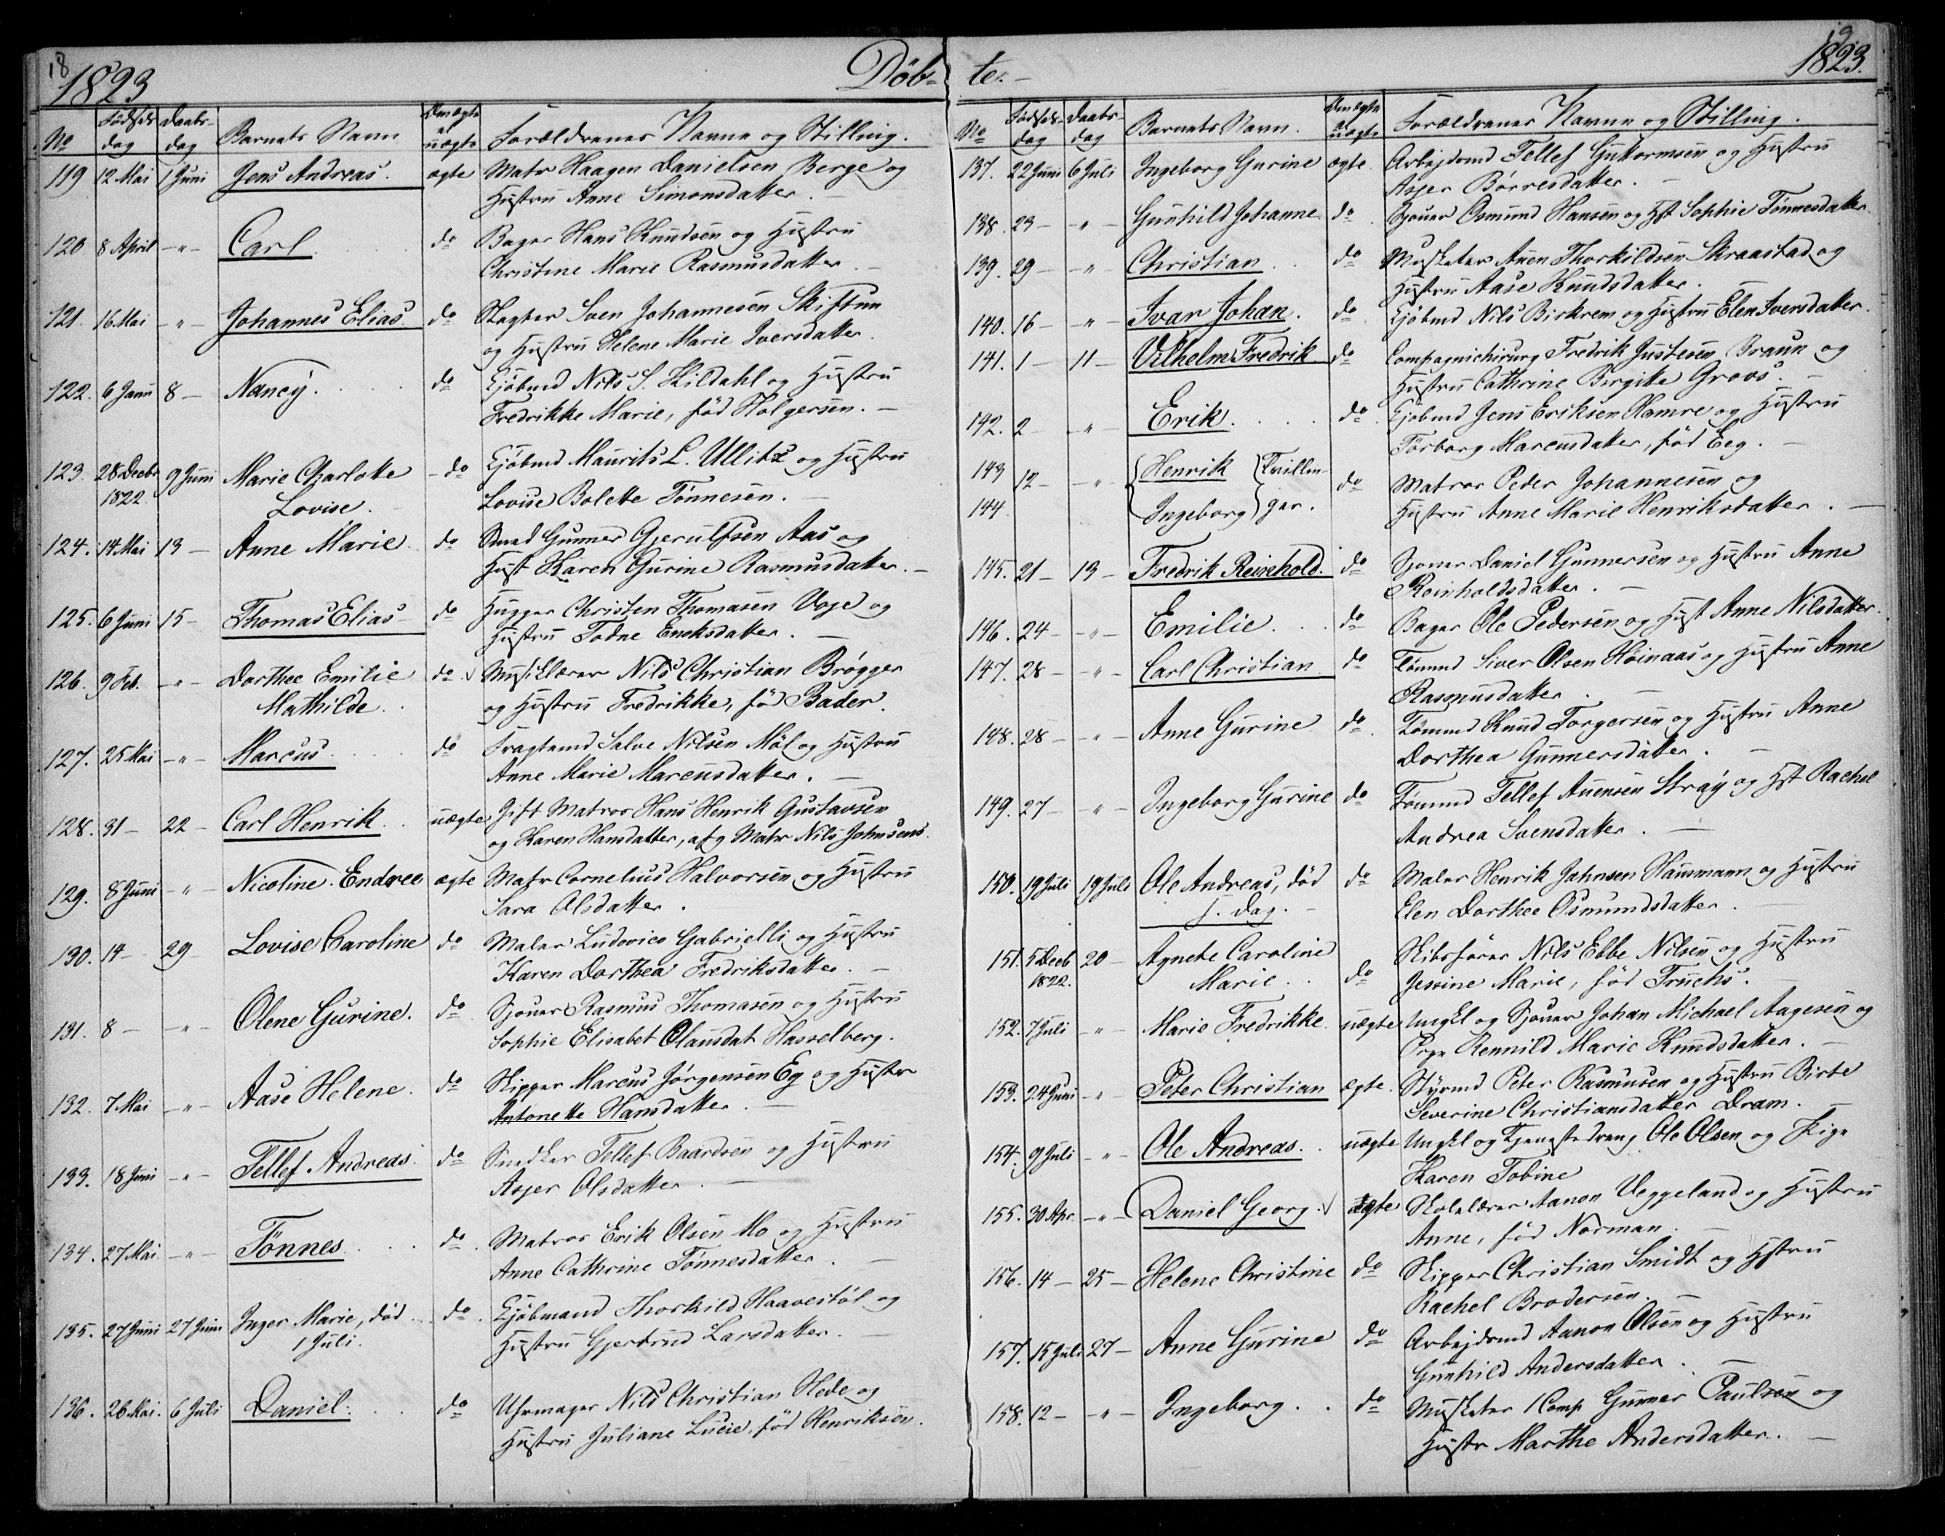 18
1823
Döb-
No
Födsels-
dag
Daabs-
dag
Barnets Navn
Om ægte
el
uægte
Forældrenes Navne og Stilling.
119 12 Mai 1 Juni Jens Andreas. ægte Matr Haagen Danielsen Berge og
Hustru Anne Simonsdatter. —
120 8 April –"– Carl do Bager Hans Knudsen og Hustru
Christine Marie Rasmusdatter —
121. 16 Mai –"– Johannes Elias. do Slagter Sven Johannesen Skiftun
og Hustru Helene Marie Iversdatter.
122. 6 Janu 8 – Nancÿ. do Kjöbmd Nils S. Kildahl og Hustru
Fredrikke Marie, föd Holgersen. —
123. 28 Decbr 9 Juni Marie Charlotte – do Kjöbmd Maurits L. Ullitz og Hustru
1822. Lovise. Lovise Bolette Tönnesen. —
124. 14 Mai 13 – Anne Marie do Smed Gunner Gjerulfsen Aas og
Hust Karen Gurine Rasmusdatter. —
125. 6 Juni 15 – Thomas Elias do Hugger Christen Thomasen Voje og
Hustru Todne Enoksdatter. —
126. 9 Feb. –"– Dorthee Emilie do Musiklærer Nils Christian Brögger
Mathilde. og Hustru Fredrikke, föd Bader.
127. 25 Mai –"– Marcus do Fragtemd Salve Nilsen Möl og Hustru
Anne Marie Marcusdatter. —
128. 31 – 22 – Carl Henrik uægte Gift Matros Hans Henrik Gustavsen
og Karen Hansdatter, afg Matr Nils Johnsens.
129. 8 Juni –"– Nicoline Endree ægte Matr Cornelius Halvorsen og Hustru
Sara Olsdatter.
130. 14 – 29 – Lovise Caroline do Maler Ludovico Gabrielli og Hustru
Karen Dorthea Fredriksdatter. —
131. 8 – –"– Olene Gurine. do Sjouer Rasmus Thomasen og Hustru
Sophie Elisabet Olausdat Hasselberg.
132. 7 Mai –"– Aase Helene. do Skipper Marcus Jörgensen Eg og Hustru
Antonette Hansdatter —
133. 18 Juni –"– Tellef Andreas. do Snedker Tellef Baardsen og Hustru
Asjer Olsdatter —
134. 27 Mai. –"– Tönnes do Matros Erik Olsen Mo og Hustru
Anne Cathrine Tönnesdatter. —
135. 27 Juni 27 Juni Inger Marie, död do Kjöbmand Thorkild Haavestöl og
1 Juli. Hustru Gjertrud Larsdatter. —
136. 26 Mai. 6 Juli Daniel. do Uhrmager Nils Christian Hede og
Hustru Juliane Lucie, föd Henriksen.
19
te. –
1823.
No
Födsels-
dag
Daabs-
dag
Barnets Navn.
Om ægte
el
uægte
Forældrenes Navne og Stilling.
137. 22 Juni 6 Juli Ingeborg Gurine ægte. Arbejdsmd Tellef Guttormsen og Hustru
Asjer Börresdatter. —
138. 23 – –"– Gunhild Johanne do Sjouer Osmund Hansen og Hst Sophie Tönnesdatter
139. 29 – –"– Christian do Musketer Auen Thorkildsen Skraastad og
Hustru Aase Knudsdatter. —
140. 16 – –"– Ivar Johan. do Kjöbmd Nils Birkrem og Hustru Elen Iversdatter.
141. 1 – 11 – Vilhelm Fredrik do Compagnichirurg Fredrik Justesen Braun og
Hustru Cathrine Birgitte Groos. —
142. 2 – –"– Erik. do Kjöbmd Jens Eriksen Hamre og Hustru
Torborg Marcusdatter, föd Eeg. —
143 12 – –"– Henrik Tvillin- do Matros Peder Johannesen og
144. Ingeborg ger. Hustru Anne Marie Henriksdatter. —
145. 21 – 13 – Fredrik Reinhold. do Sjouer Daniel Gunnersen og Hustru Anne
Reinholdsdatter. —
146. 24 – –"– Emilie. do Bager Ole Pedersen og Hust Anne Nilsdatter.
147. 28 – –"– Carl Christian do Tömmd Siver Olsen Höinaas og Hustru Anne
Rasmusdatter. —
148. 28 – –"– Anne Gurine do Tömmd Knud Torgersen og Hustru Anne
Dorthea Gunnersdatter. —
149. 27 – –"– Ingeborg Gurine do Tömmd Tellef Auensen Straÿ og Hst Rachel
Andrea Svensdatter. —
150. 19 Juli 19 Juli Ole Andreas, död do Maler Henrik Jahnsen Hausmann og Hustru
s. Dag. – Elen Dorthee Osmundsdatter. —
151. 5 Decb 20 – Agnete Caroline Skibsförer Nils Ebbe Nilsen og Hustru
1822. Marie do Jessine Marie, föd Fruchs.
152. 7 Juli –"– Marie Fredrikke. uægte Ungkl og Sjouer Johan Michael Aagesen og
Pige Rennild Marie Knudsdatter. —
153. 24 Juni –"– Peter Christian ægte. Styrmd Peter Rasmusen og Hustru Birte
Severine Christiansdatter Dram. —
154. 9 Juli –"– Ole Andreas. uægte Ungkl og Tjenestedreng Ole Olsen og Pige
Karen Tobine
155. 30 Apr –"– Daniel Georg. ægte Skolelærer Aanon Veggeland og Hustru
Anne, föd Norman. —
156. 14 – 25 – Helene Christine do Skipper Christian Smidt og Hstru
Rachel Brodersen. —
157. 15 Juli 27 – Anne Gurine do Arbejdsmd Aanon Olsen og Hustru
Gunhild Andersdatter. —
158. 12 – –"– Ingeborg. do Musketer 1 Comp Gunner Paulsen og
Hustr Marthe Andersdatter. —